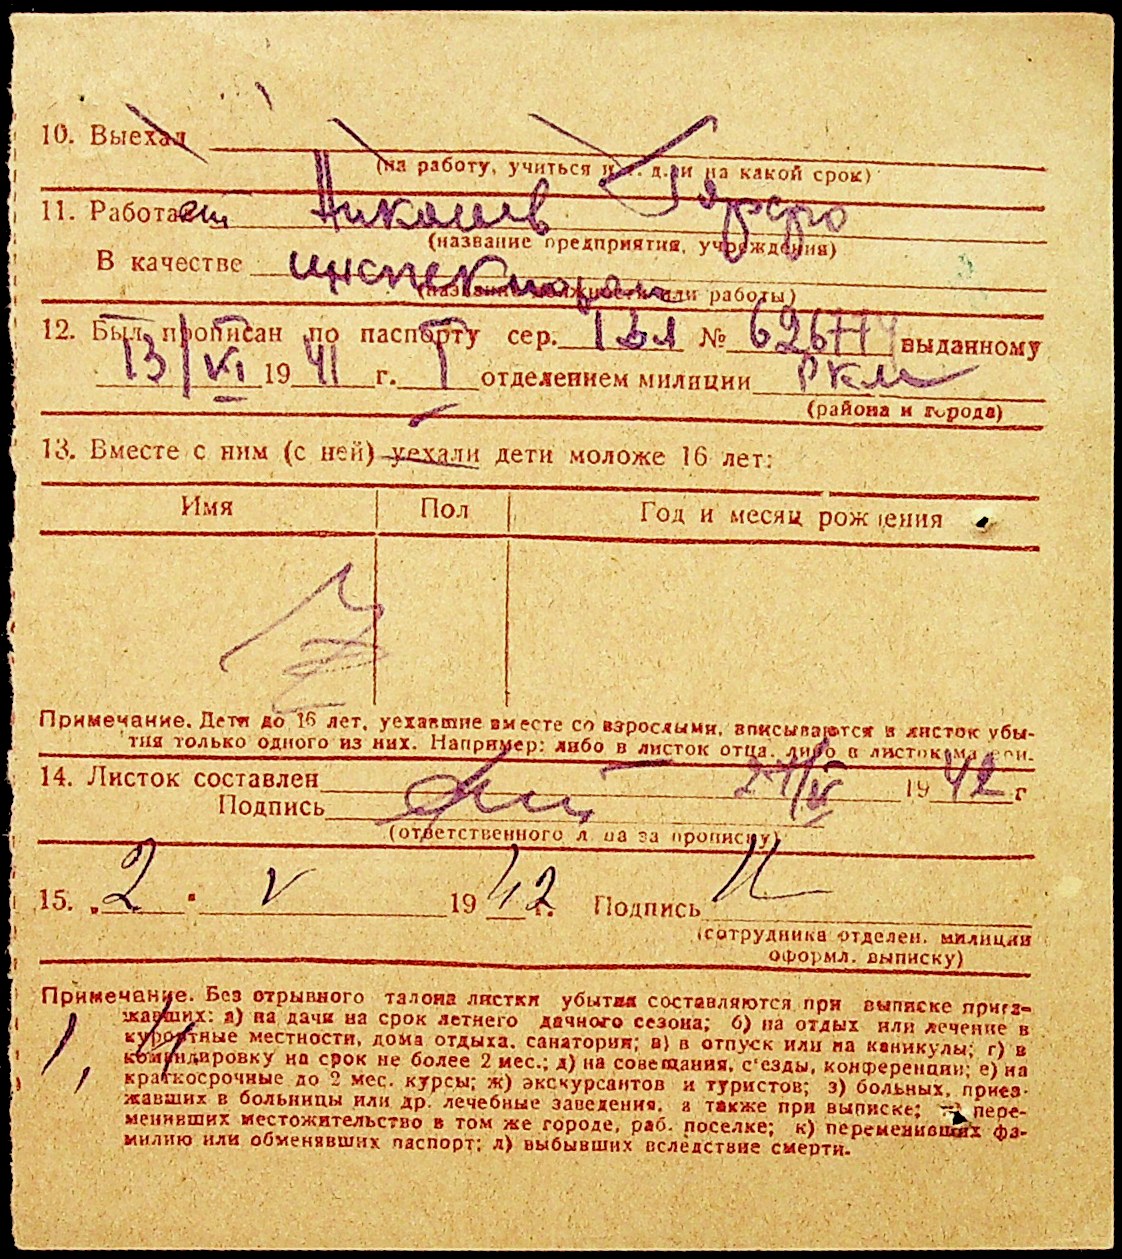 10. Выехал
(на работу, учиться и т. д. и на какой срок)
11. Работает
(название предприятия, учреждения)
В качестве инспектора
(название должности или работы)
12. Был прописан по паспорту сер. № выданному
13/VI 1941 г. I отделением милиции РКМ
(района и города)
13. Вместе с ним (с ней) уехали дети моложе 16 лет:
Имя Пол Год и месяц рождения
Примечание. Дети до 16 лет, уехавшие вместе со взрослыми, вписываются в листок убы-
тия только одного из них. Например: либо в листок отца, либо в листок матери.
14. Листок составлен 1942 г
Подпись
(ответственного лица за прописку)
15. „2" V 1942 г. Подпись
(сотрудника отделен. милиции
оформл. выписку)
Примечание. Без отрывного талона листки убытия составляются при выписке приез-
жавших: а) на дачи на срок летнего дачного сезона; б) на отдых или лечение в
курортные местности, дома отдыха, санатория; в) в отпуск или на каникулы; г) в
командировку на срок не более 2 мес.; д) на совещания, с'езды, конференции; е) на
краткосрочные до 2 мес. курсы; ж) экскурсантов и туристов; з) больных, приез-
жавших в больницы или др. лечебные заведения, а также при выписке; пере-
менивших местожительство в том же городе, раб. поселке; к) переменивших фа-
милию или обменявших паспорт; л) выбывших вследствие смерти.